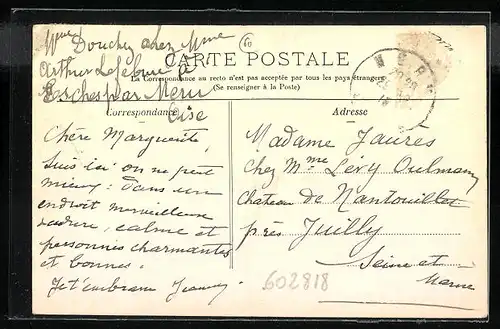 Mme Douchez chez Mme
Arthur Lefebvre à
Esches par Meru
Oise
60
CARTE POSTALE
La Correspondance au recto n'est pas acceptée par tous les pays étrangers
(Se renseigner à la Poste)
MERU
Correspondance
Adresse
Chère Marguerite,
Suis ici on ne peut
mieux : dans un
endroit merveilleux
verdure, calme et
personnes charmantes
et bonnes.
Je t'embrasse Jeanne
Madame Jaurès
Chez Mme Lévy Oulmann
Chateau de Nantouillet
près Juilly
Seine et
Marne
602818